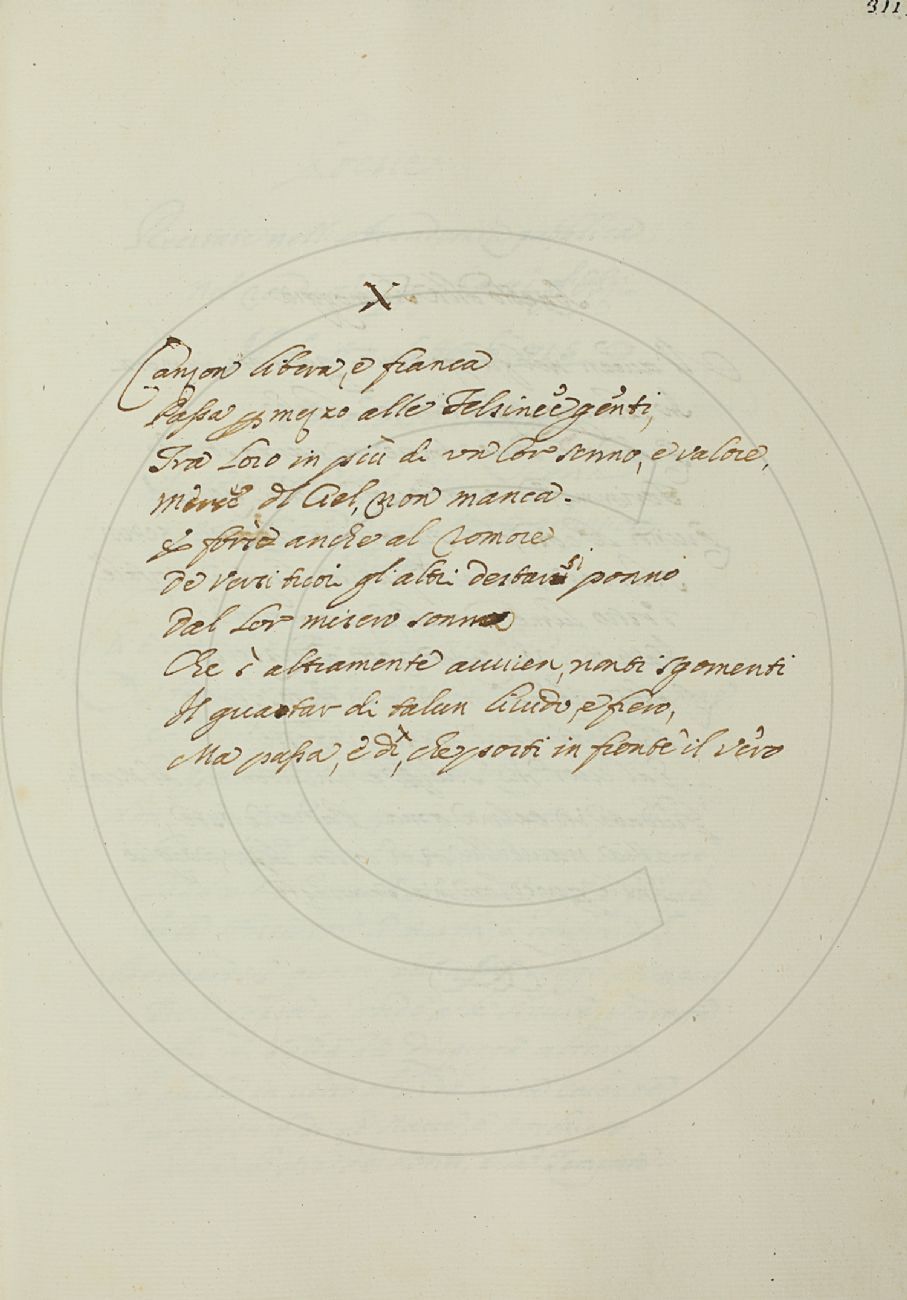 311
X
Canzon libera, e franca
Passa p mezzo alle Felsinee genti,
Tra Loro in più di un lor senno, e valore,
mercè del Ciel, non manca.
E forse anche al romore
De versi tuoi gl'altri destarsi ponno
Dal Lor misero sonno
Che s'altramente avvien, non ti sgomenti
Il guattar di talun livido, e fiero,
Ma passa, e dì, che porti in fronte il vero